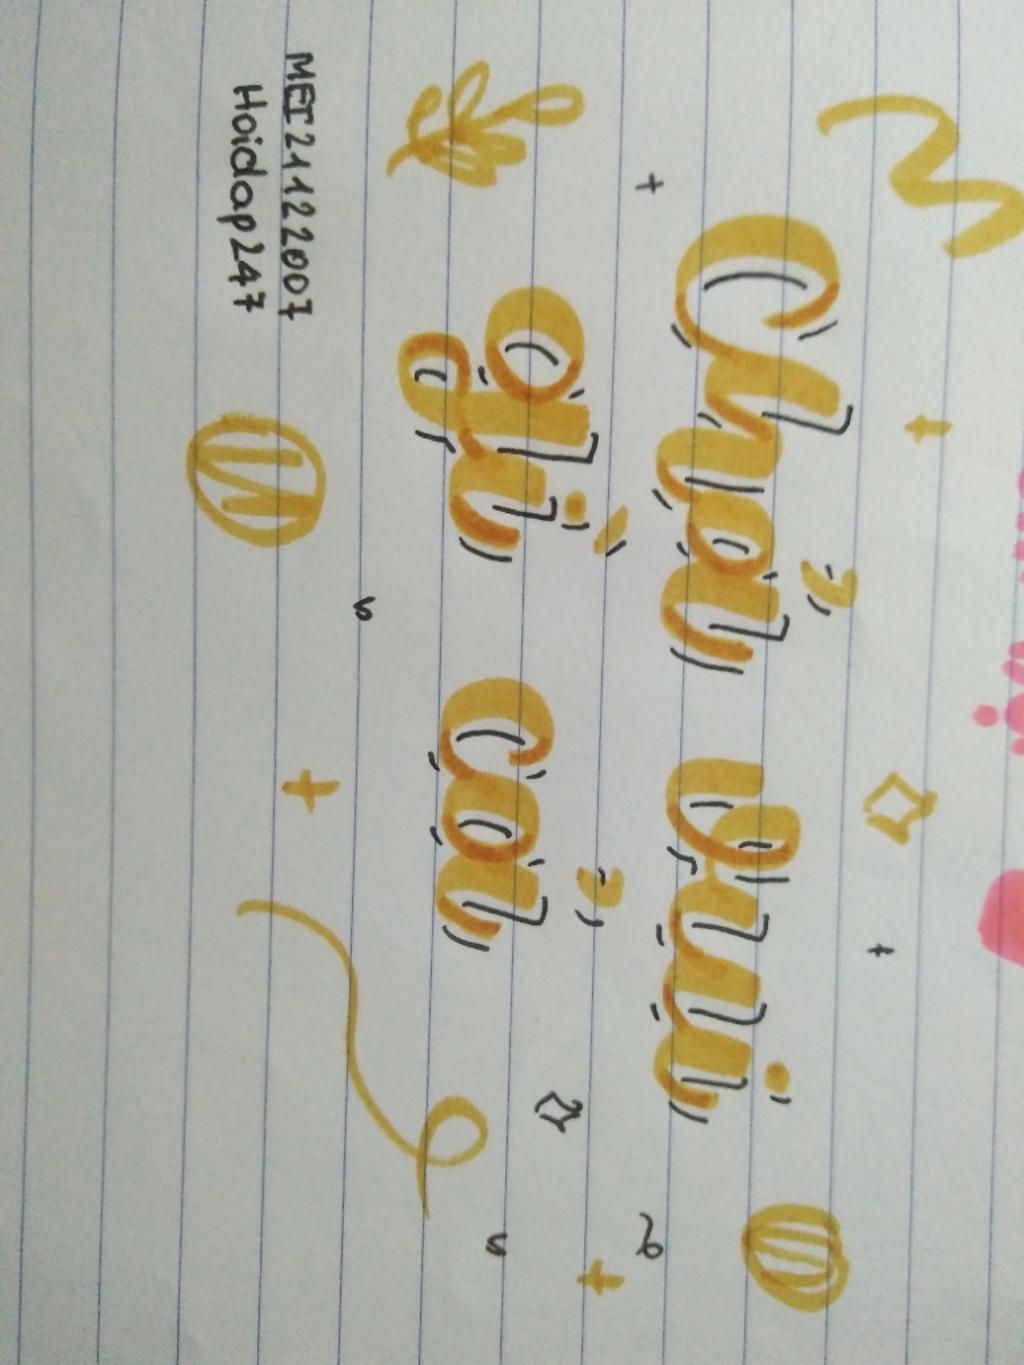 Chả vui
gì cả
MEI21122007
Hoidap247